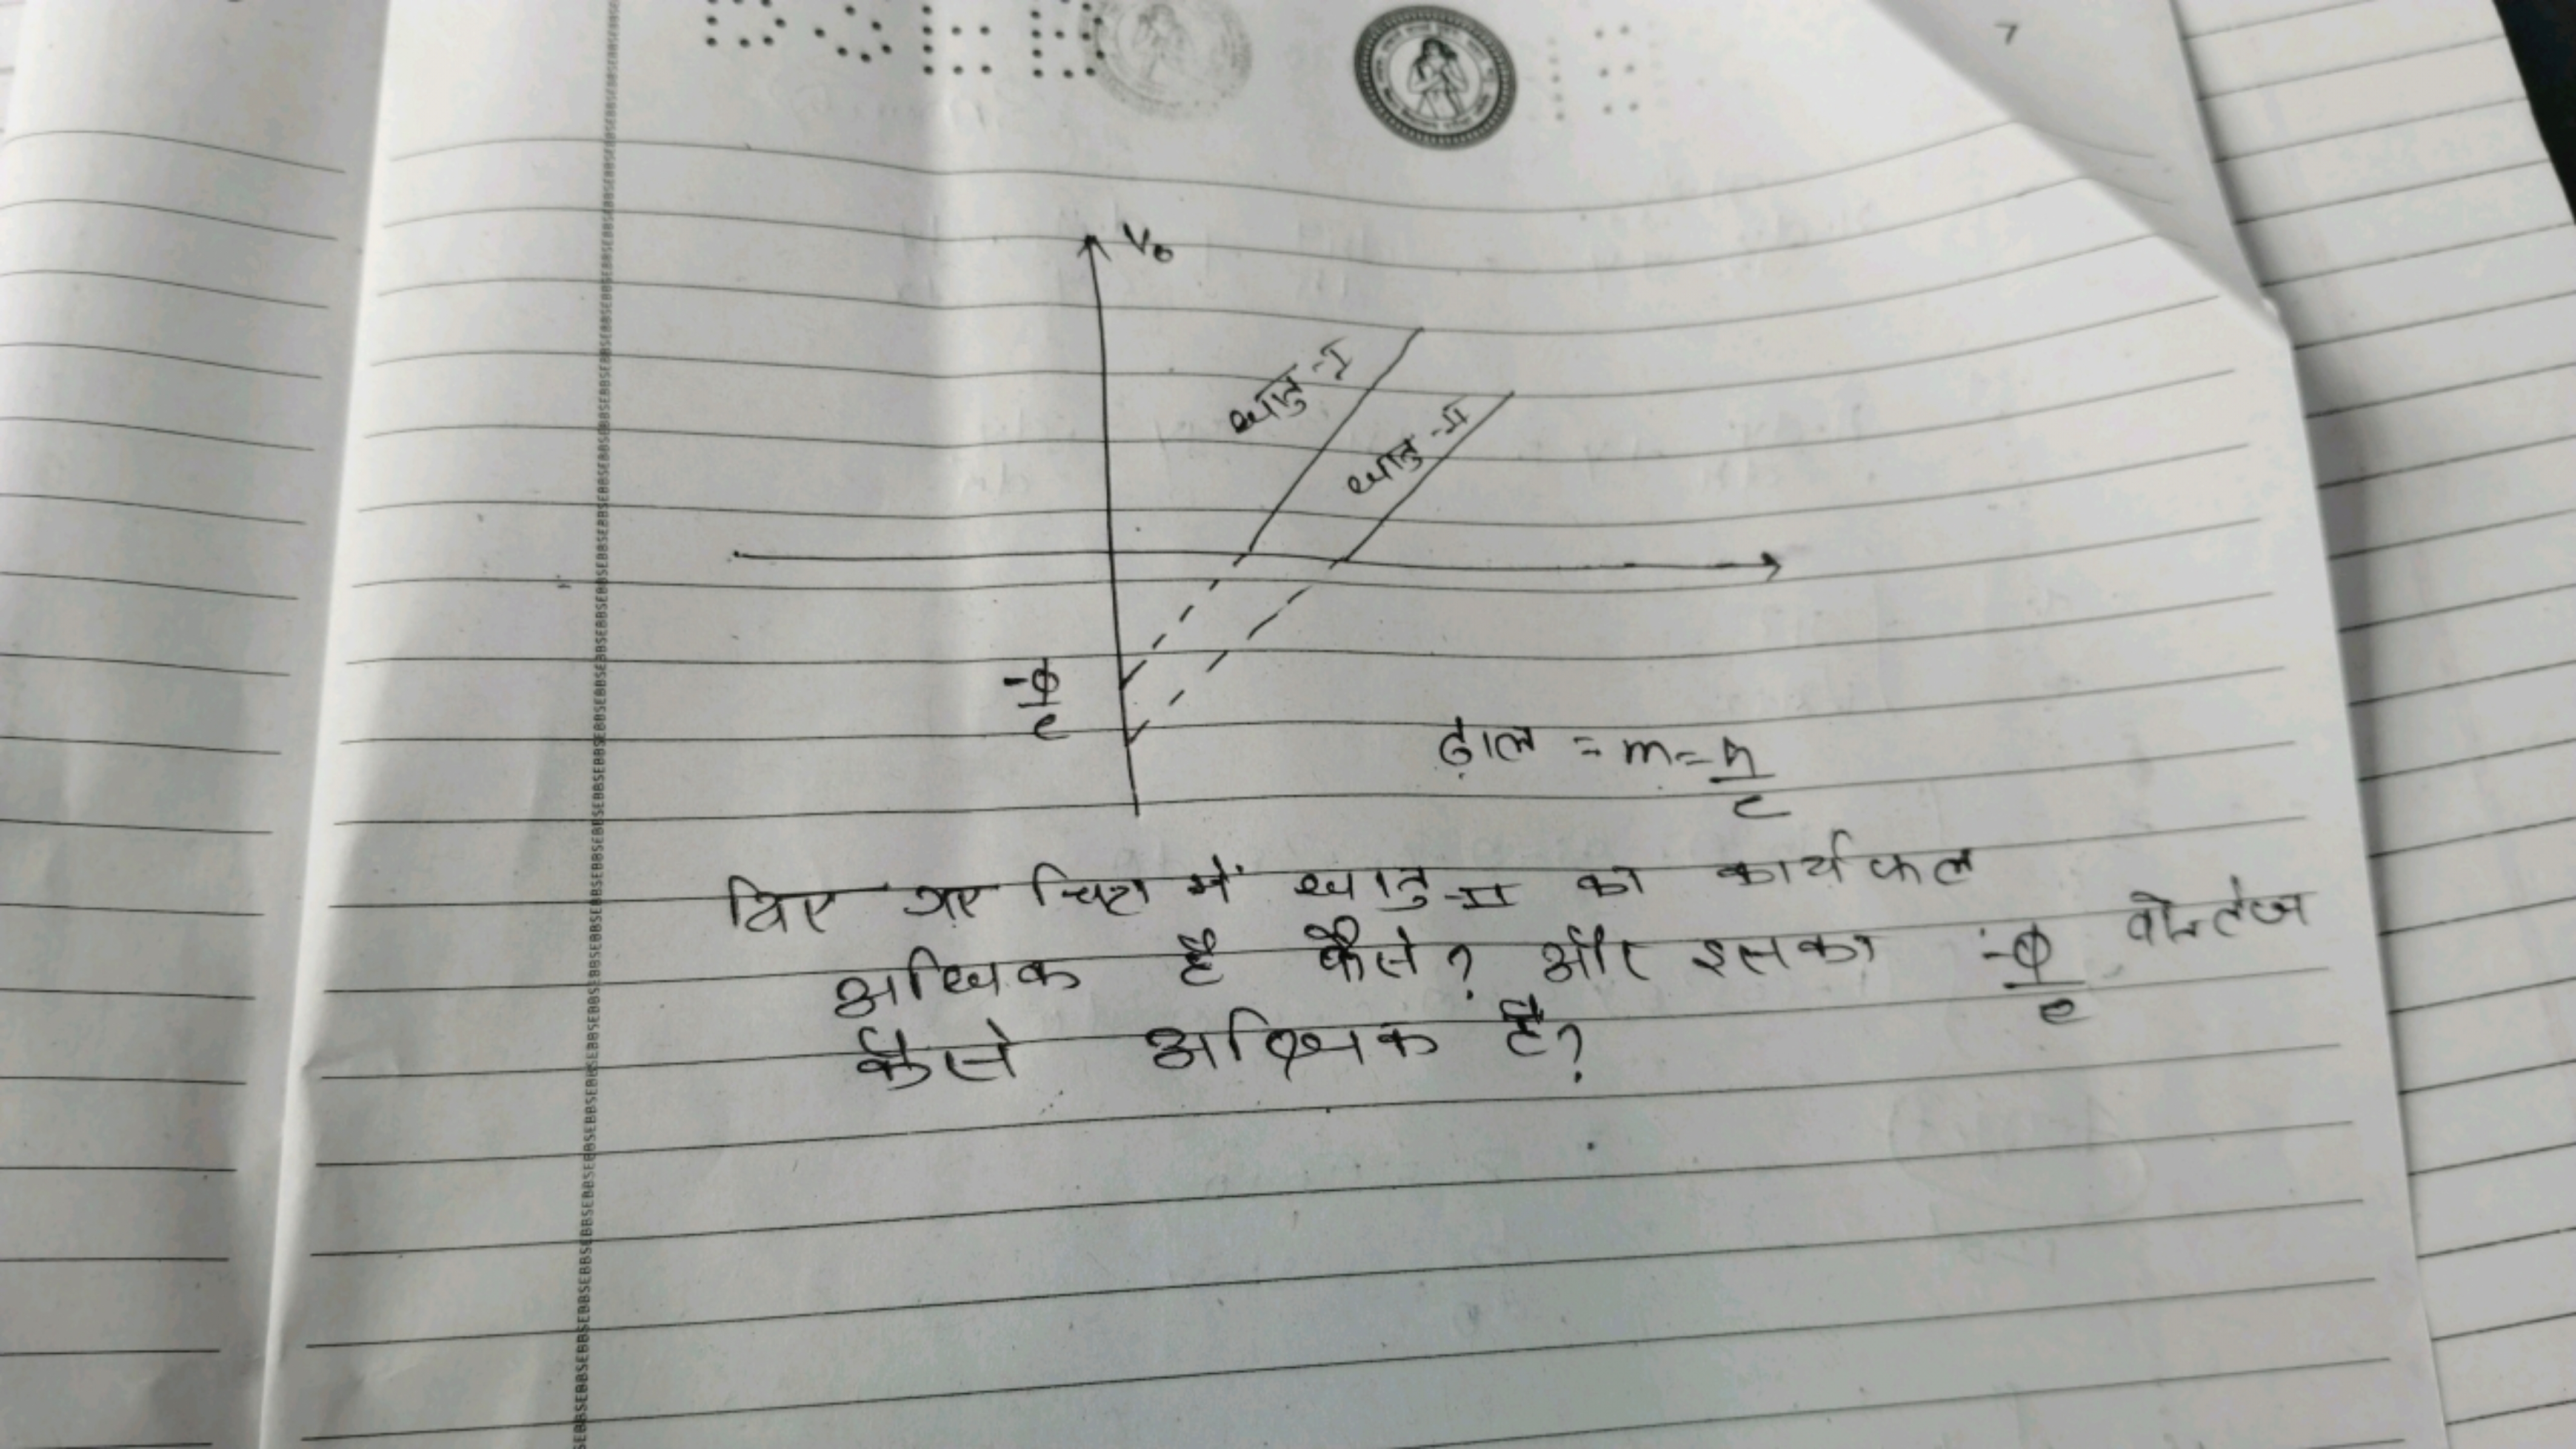 V₀
धातु-I
धातु-II
-ϕ/e
ढ़ाल = m = h/e
दिए गए चित्र में धातु-II का कार्य फल
अधिक है कैसे? और इसका -ϕ/e वोल्टेज
कैसे अधिक है?